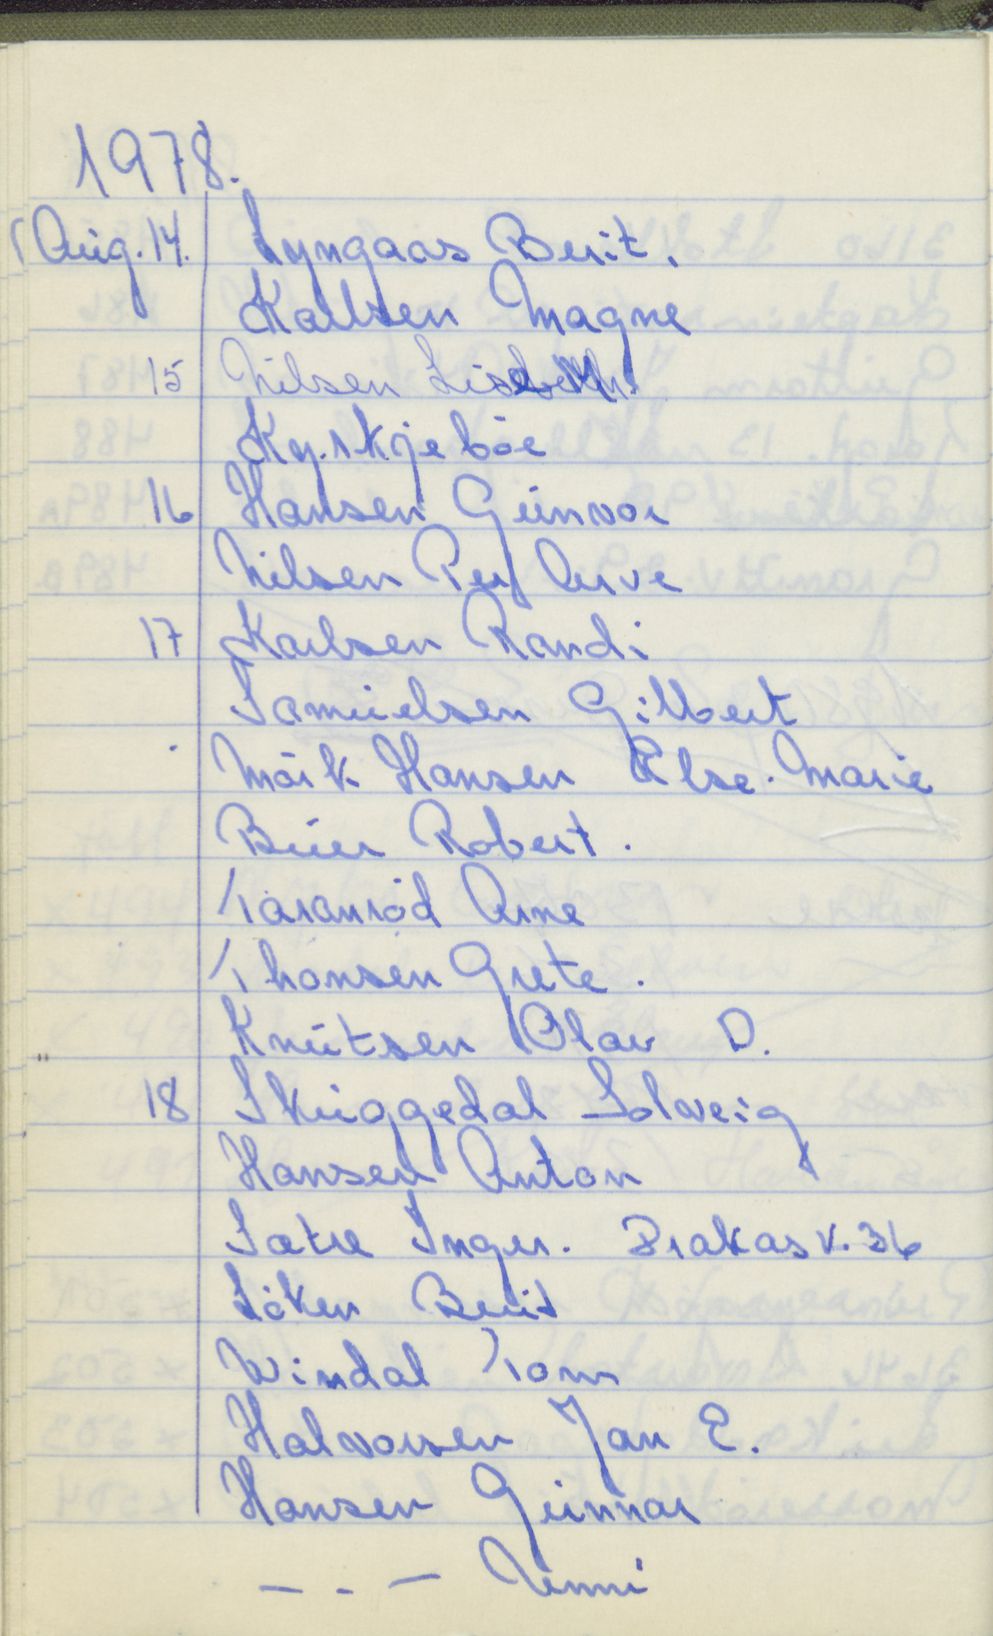 1978.
Aug. 14. Lyngaas Berit.
Karlsen Magne
15 Nilsen Lisbeth.
Ky.skjebøe
16 Hansen Gunvor
Nilsen Per Arve
17 Karlsen Randi
Samuelsen Gilbert
Mörk Hansen Else. Marie
Buer Robert.
Taranrød Arne
Thonsen Grete.
Knutsen Olav D.
18 Skuggedal Solveig
Hansen Anton
Sætre Inger. Brakas v. 36
Löken Berit
Windal Tom
Halvorsen Jan E.
Hansen Gunnar
— . — Unni